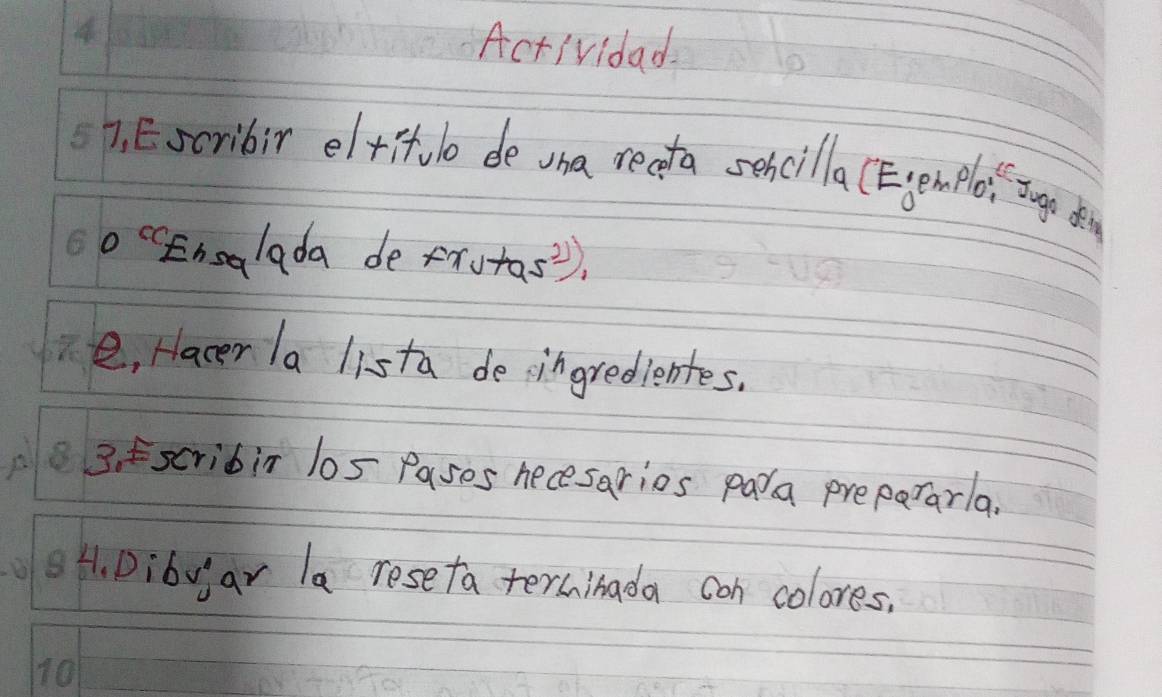 4 Actividad.
5 1. Escribir el título de una receta sencilla (Ejemplo: "Jugo de
6 o "Ensalada de frutas").
7 2. Hacer la lista de ingredientes.
8 3. Escribir los Pasos necesarios para prepararla.
9 4. Dibujar la reseta terminada con colores.
10